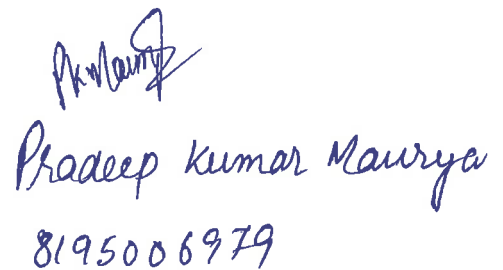 PKMaury
Pradeep Kumar Maurya
8195006979